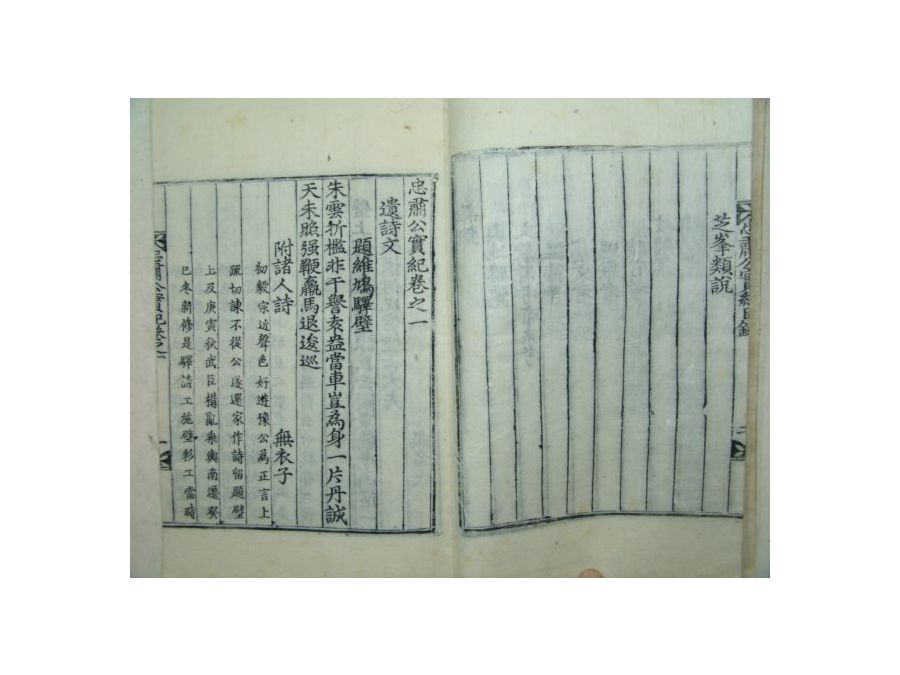 芝峯類說
忠肅公實紀目錄
二
忠肅公實紀卷之一
遺詩文
題維鳩驛壁
朱雲折檻非干譽袁盎當車豈為身一片丹誠
天未照强鞭羸馬退逡巡
附諸人詩 無衣子
初毅宗近聲色好遊豫公為正言上
疏切諫不從公遂還家作詩留題壁
上及庚寅秋武臣構亂乘輿南遷癸
巳冬新修是驛請工施壁彩工當時
忠肅公實紀卷之一
一